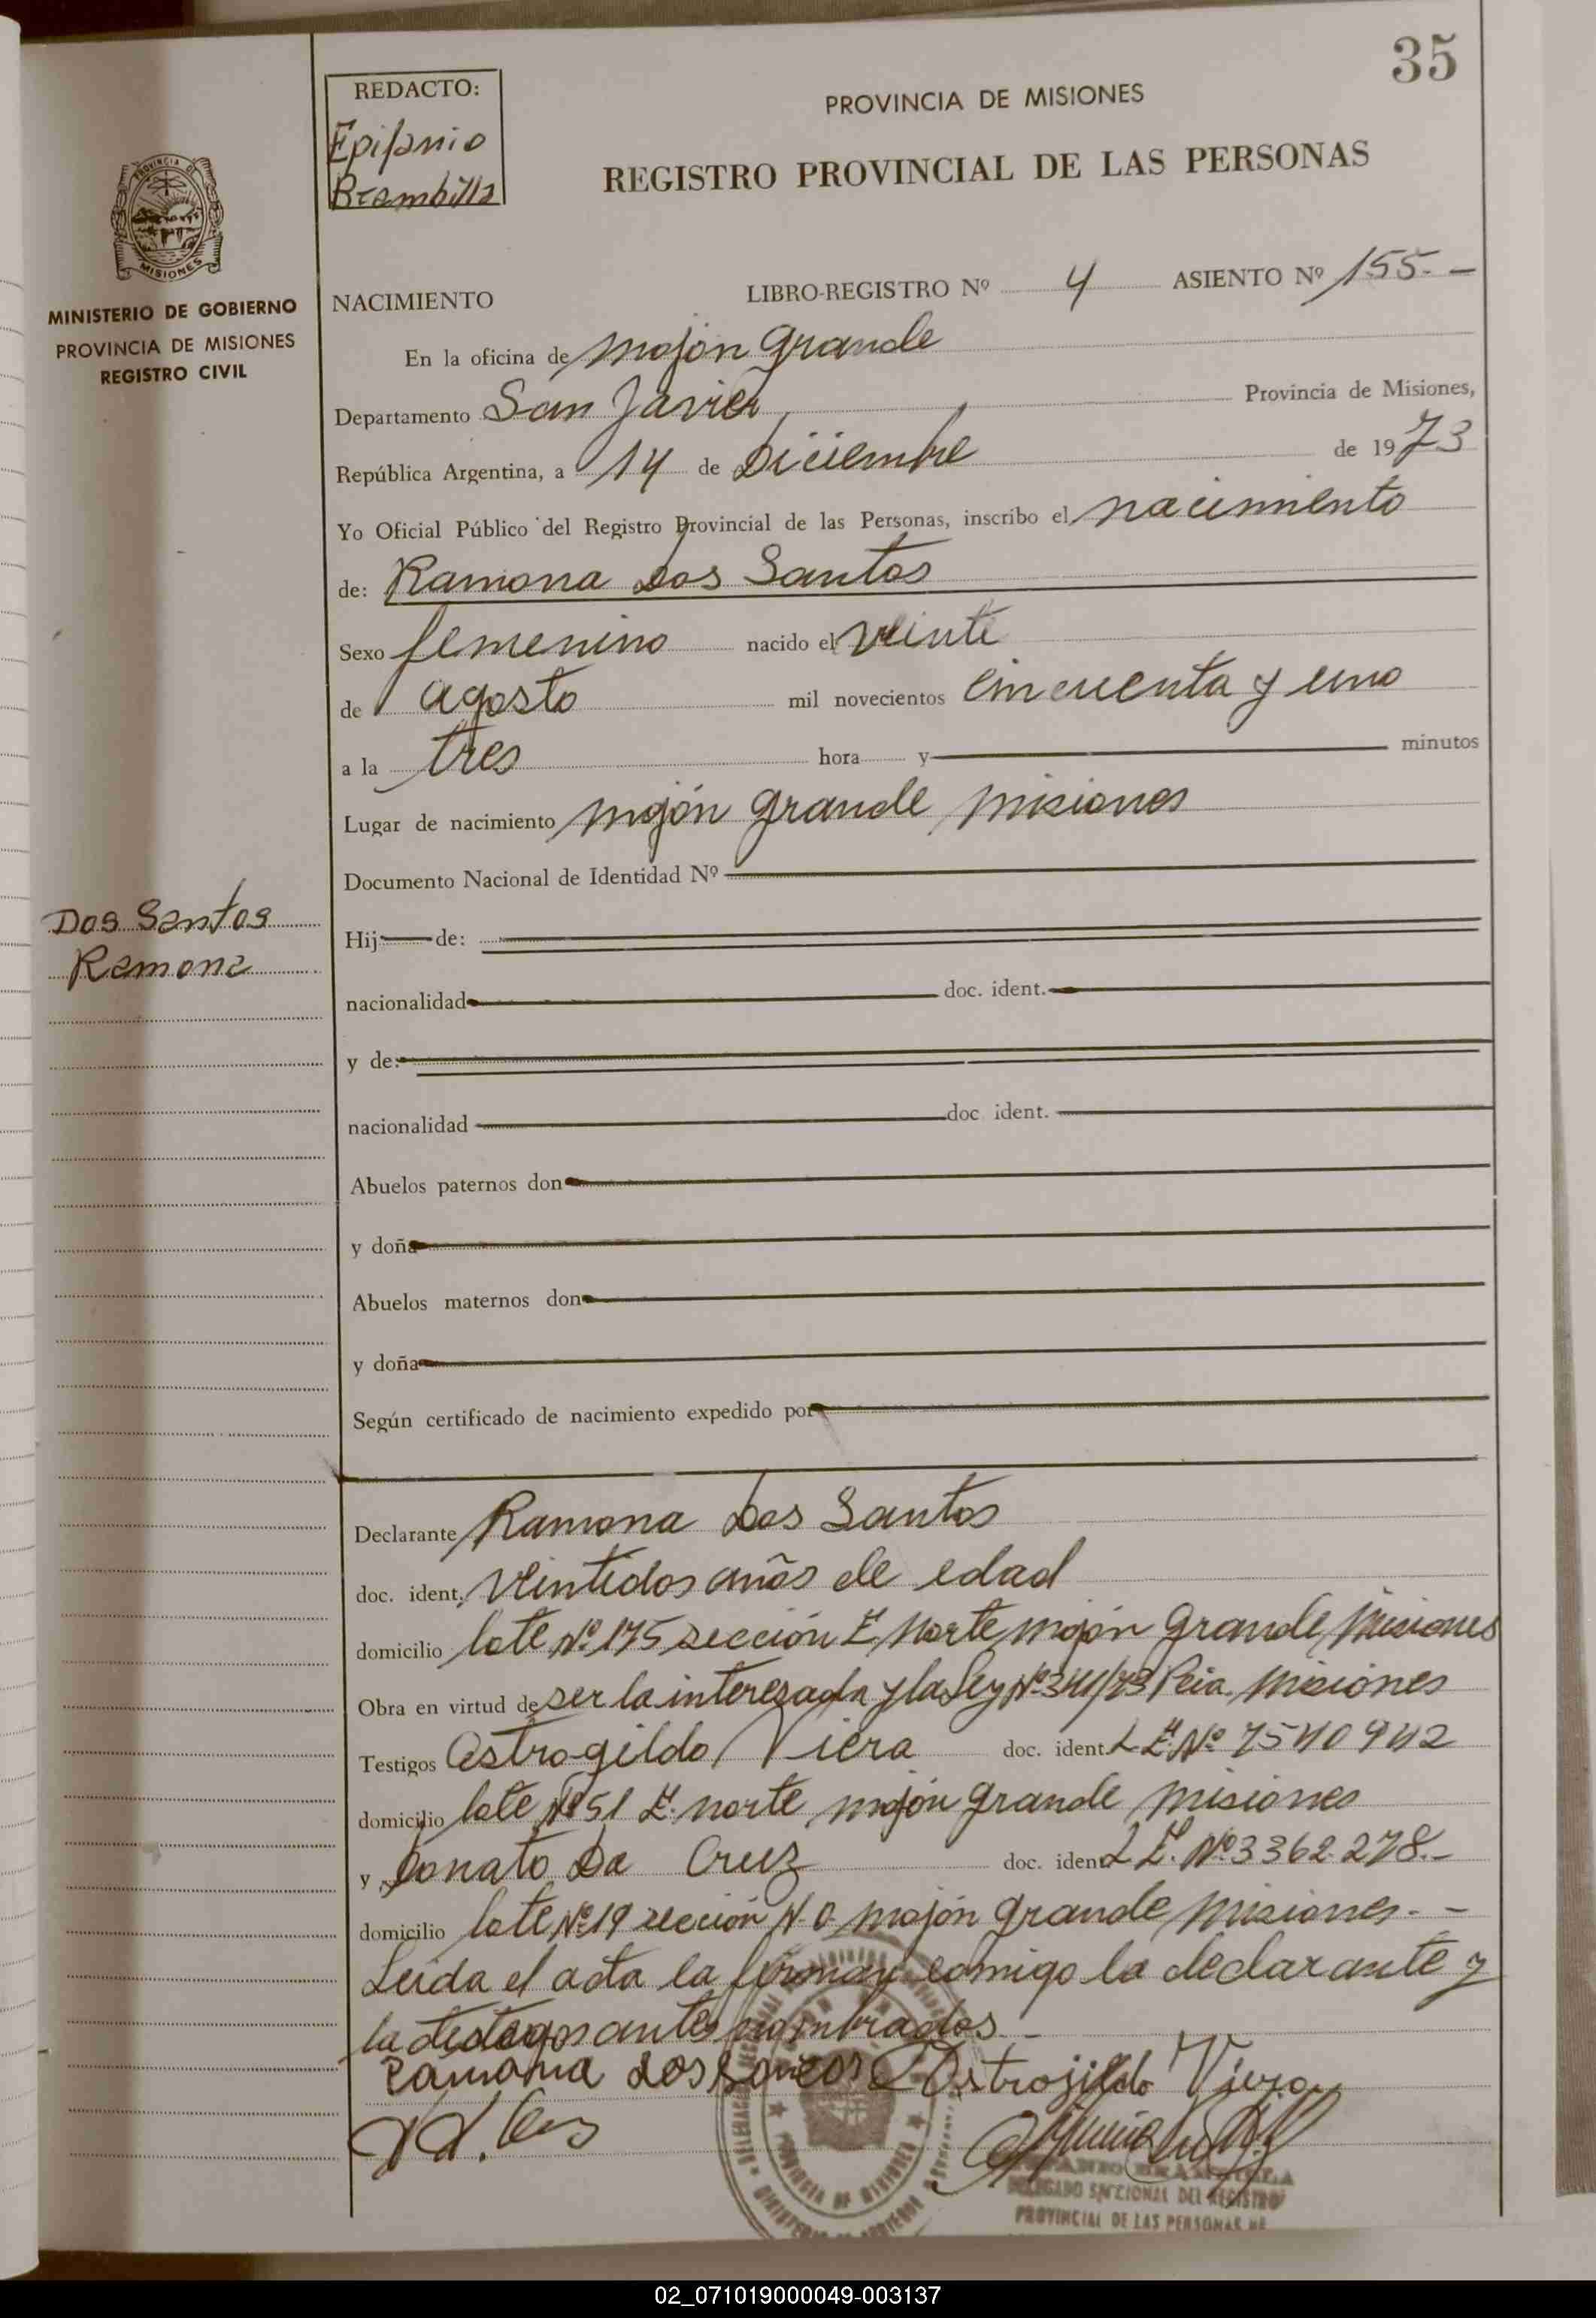 35
REDACTO:
Epifanio
Brambilla
PROVINCIA DE MISIONES
REGISTRO PROVINCIAL DE LAS PERSONAS
PROVINCIA DE
MISIONES
MINISTERIO DE GOBIERNO
PROVINCIA DE MISIONES
REGISTRO CIVIL
NACIMIENTO LIBRO-REGISTRO Nº 4 ASIENTO Nº 155.-
En la oficina de mojón grande
Departamento San Javier, Provincia de Misiones,
República Argentina, a 14 de Diciembre de 1973
Yo Oficial Público del Registro Provincial de las Personas, inscribo el nacimiento
de: Ramona Dos Santos
Sexo femenino nacido el veinte
de agosto mil novecientos cincuenta y uno
a la tres hora y minutos
Lugar de nacimiento mojón grande, misiones
Documento Nacional de Identidad Nº
Dos Santos
Ramona
Hij de:
nacionalidad doc. ident.
y de:
nacionalidad doc ident.
Abuelos paternos don
y doña
Abuelos maternos don
y doña
Según certificado de nacimiento expedido por
Declarante Ramona Dos Santos
doc. ident. veintidos años de edad
domicilio lote Nº 175 sección E. Norte, mojón grande, misiones
Obra en virtud de ser la interezada y la Ley Nº /73 Pcia. misiones
Testigos Astrogildo Viera doc. ident. L E. Nº 7540942
domicilio lote Nº 51 E. norte mojón grande misiones
y Donato Da Cruz doc. ident L E. Nº 3362.278.-
domicilio lote Nº 19 sección N.O. mojón grande, misiones.-
Leida el acta la firman comigo la declarante y
la testigos antes nombrados.-
Ramona dos Santos Astrojildo Viera
PROVINCIA DE MISIONES
DELEGADO SECCIONAL DEL REGISTRO
PROVINCIAL DE LAS PERSONAS DE
02_071019000049-003137